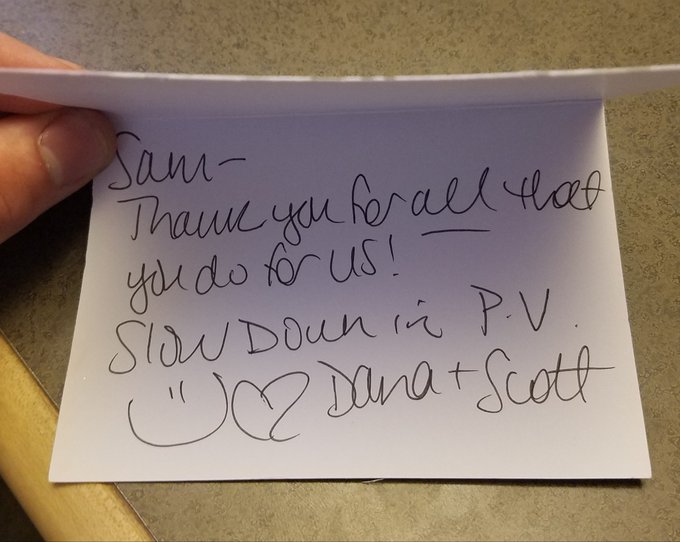 Sam-
Thank you for all that
you do for us!
Slow Down in P.V.
Dana + Scott